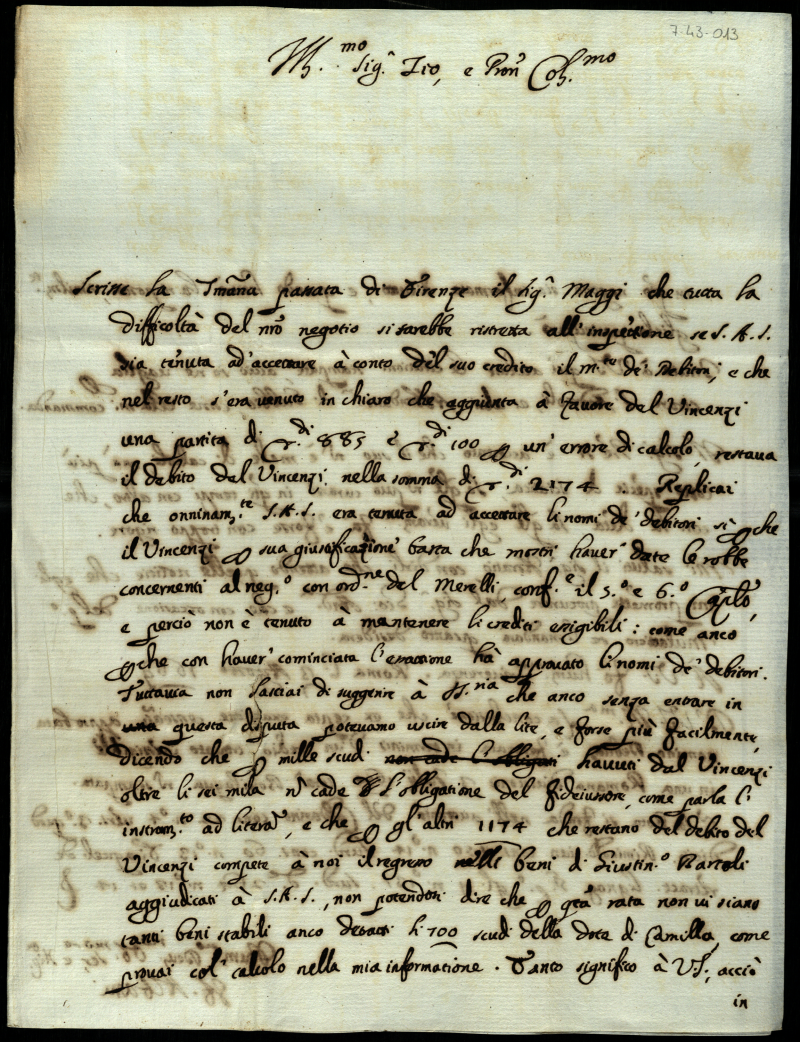 7-43-013
Ill.mo Sig.r Zio, e Pron Col.mo
Scrisse la Smāna passata di Firenze il Sig.r Maggi che tutta la
difficoltà del nrō negotio si sarebbe ristretta all'inspettione se S.A.S.
sia tenuta ad'accettare à conto del suo credito il m.te de' Debitori, e che
nel resto s'era venuto in chiaro che aggiunta à favore del Vincenzi
una partita di 885 e 100 un'errore di calcolo, restava
il debito del Vincenzi nella somma di 2174. Replicai
che onninam.te S.A.S. era tenuta ad accettare li nomi de' debitori si che
il Vincenzi sua giustificazione basta che mostri haver' date le robbe
concernenti al neg.o con ord.ne del Merelli, conf.e il 5.o e 6.o Cap.lo,
e perciò non è tenuto à mantenere li crediti esigibili: come anco
che con haver' cominciata l'esattione hà approvato li nomi de' debitori.
Tuttavia non lasciai di suggerire à che anco senza entrare in
una questa disputa potevamo uscire dalla lite, e forse più facilmente,
dicendo che mille scudi non cade l'obligati havuti dal Vincenzi
oltre li sei mila nō cade l'obligatione del fideiussore, come parla l'
instrom.to ad literā, e che gl'altri 1174 che restano del debito del
Vincenzi compete à noi il regresso nelli beni di Giustin.o Bartoli
aggiudicati à S.A.S., non potendosi dire che qtā rata non vi siano
tanti beni stabili anco detratti li 700 scudi della dote di Camilla, come
provai col' calcolo nella mia informatione. Tanto significo à V.S., acciò
in